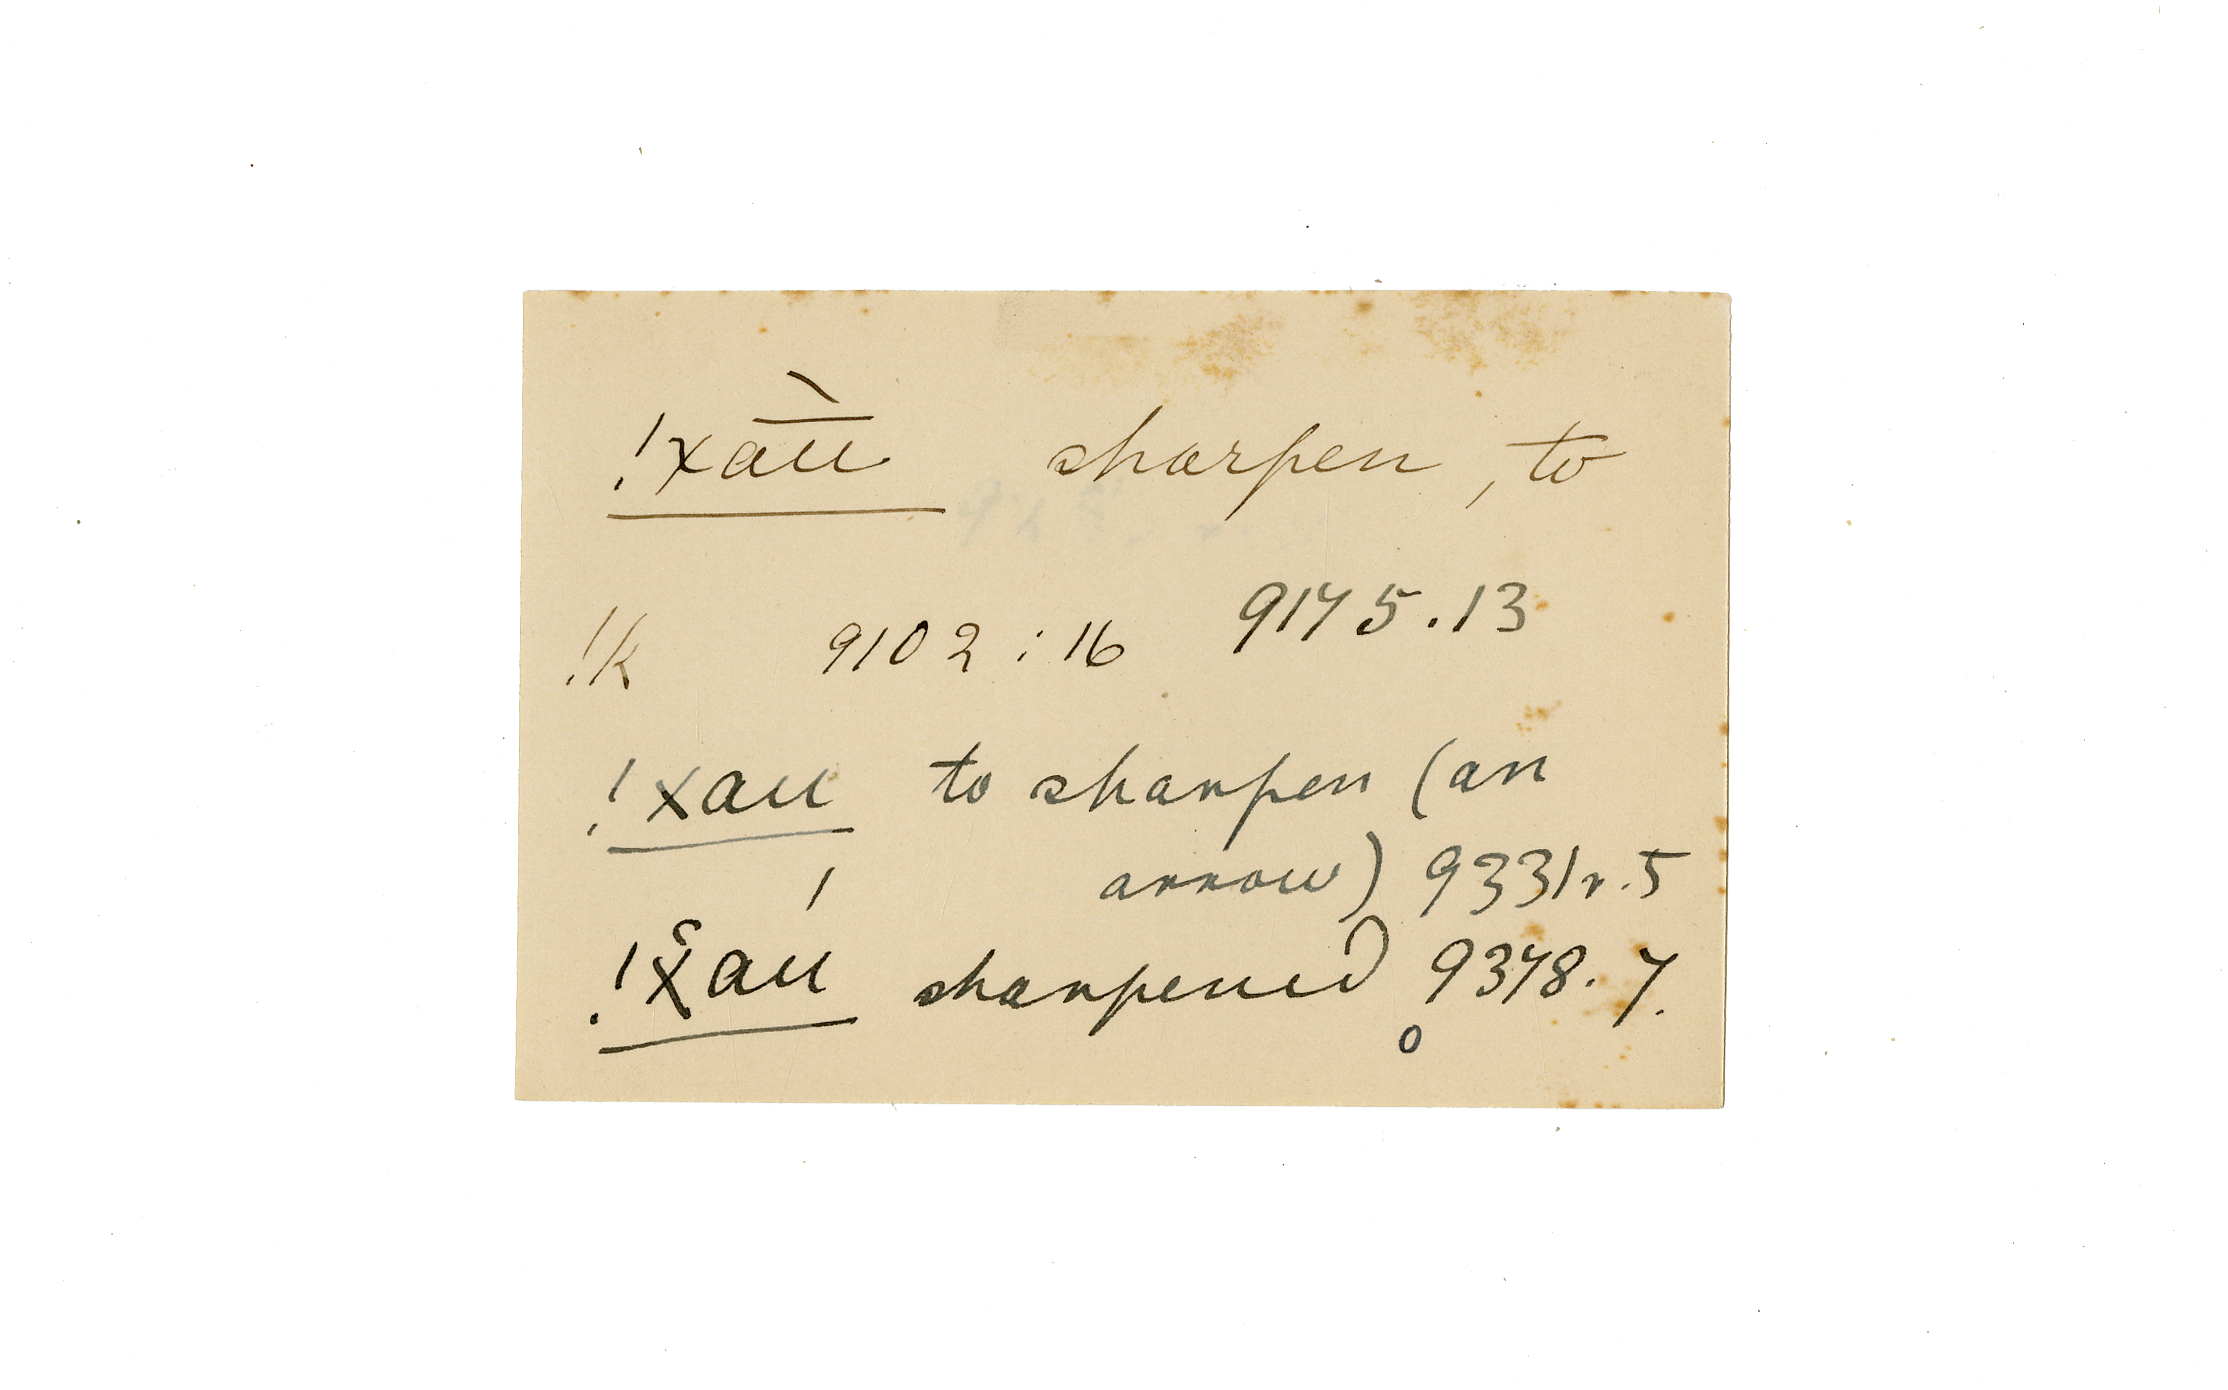 !χau̅̀ sharpen, to
!k 9102:16 9175.13
!χau to sharpen (an
arrow) 9331r.5
!χ̔áu sharpened 9378.7.